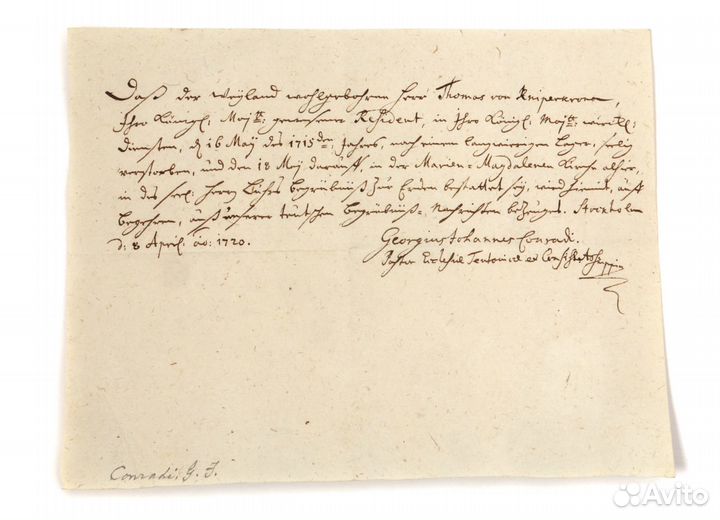 Daß der Weyland wohlgebohrne Herr Thomas von Kniperkrona,
Ihro Königl: Maj:tt: gewesener Resident, in Ihro Königl: Maj:tt: würckl:
Diensten, d 16 Maij des 1715den: Jahres, nach einem langwierigen Lager, seelig
verstorben, und den 18 Maij darauff, in der Marien-Magdalenen Kirche alhier,
in des seel: Herrn Begräbniß zur Erden bestattet sey, wird hiemit, auff
begehren, auß unserer teutschen Begräbniß-Nachrichten bezeuget. Stockholm
d: 8 April. ao: 1720.
Georgius Johannes Conradi.
Pastor Ecclesiæ Teutonicæ et Consist:
Conradi, G. J.
Avito